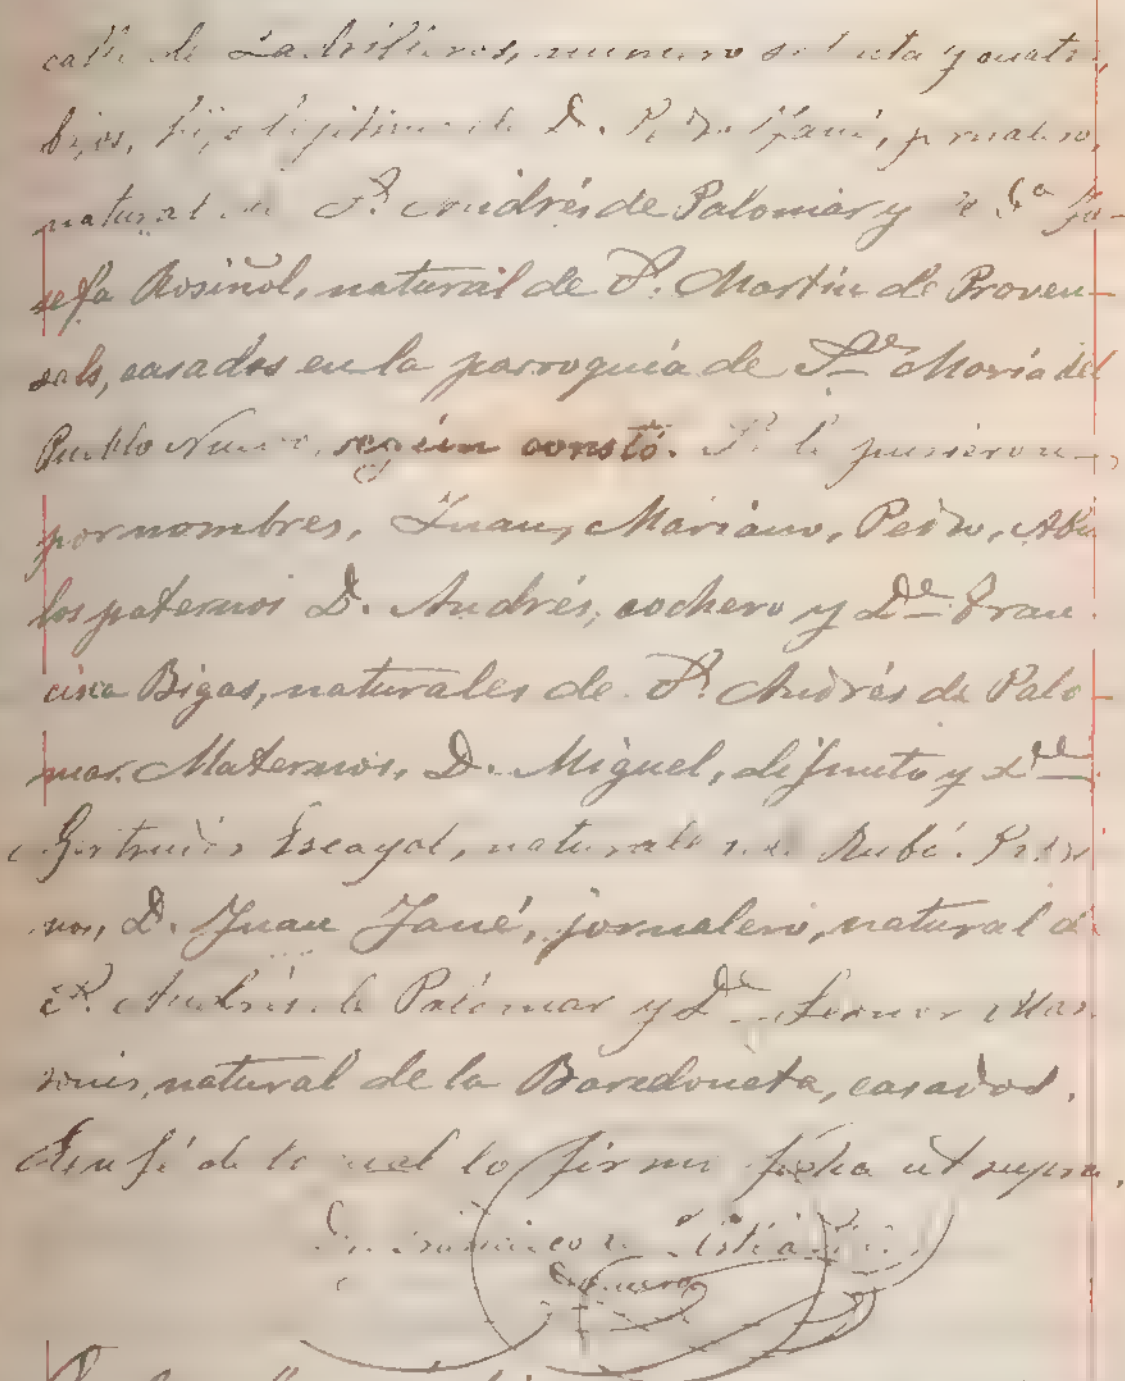 calle de Ladrilleros, numero setenta y cuatro,
bajos, hijo legitimo de D. Pedro Jané, jornalero,
natural de Sn. Andrés de Palomar y de Da Jo-
sefa Rosiñol, natural de Sn. Martin de Proven-
sals, casados en la parroquia de Sta Maria del
Pueblo Nuevo, según constó. Se le pusieron
por nombres, Juan, Mariano, Pedro, Abue
los paternos D. Andrés, cochero y Da Fran
cisca Bigas, naturales de Sn. Andrés de Palo-
mar. Maternos, D. Miguel, difunto y Da
Gertrudis Escayol, naturales de Rubí. Padri
nos, D. Juan Jané, jornalero, natural de
Sn. Andrés de Palomar y Da
natural de la Barceloneta, casados.
En fé de lo cual lo firmo fecha ut supra.